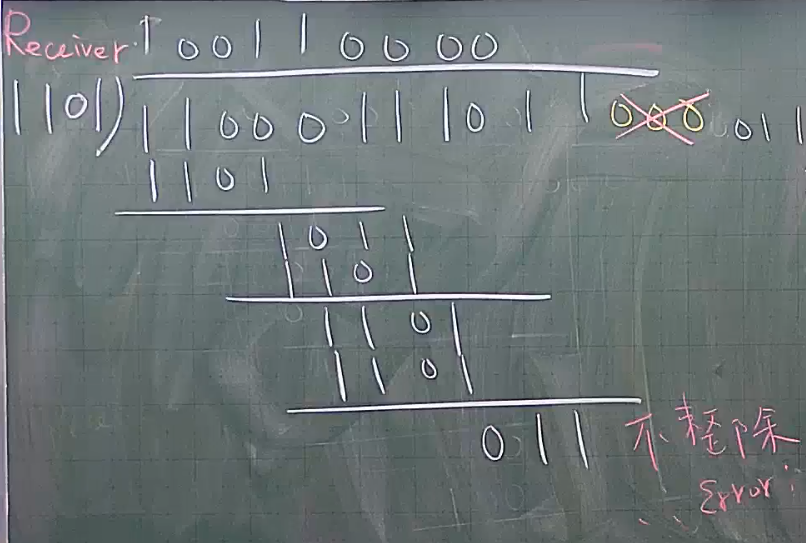 Receiver. 1 0 0 1 1 0 0 0 0
1101) 1 1 0 0 0 1 1 1 0 1 1 0 0 0 0 1 1
1 1 0 1
1 0 1 1
1 1 0 1
1 1 0 1
1 1 0 1
0 1 1 不整除
∴ Error!